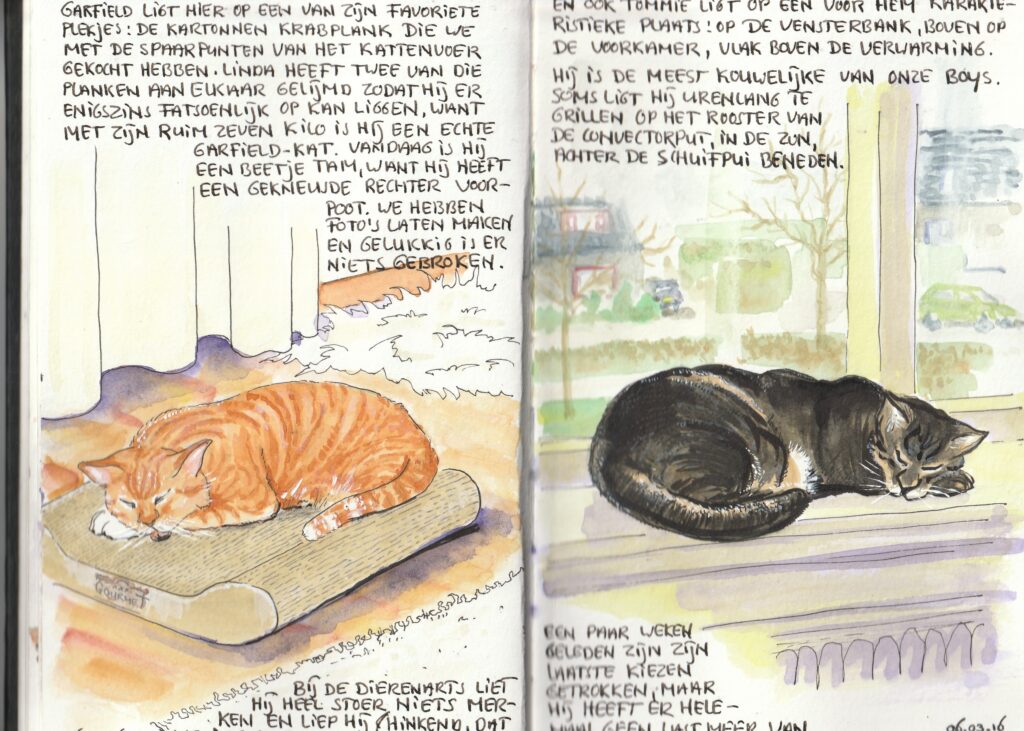 GARFIELD LIGT HIER OP EEN VAN ZIJN FAVORIETE
PLEKJES: DE KARTONNEN KRABPLANK DIE WE
MET DE SPAARPUNTEN VAN HET KATTENVOER
GEKOCHT HEBBEN. LINDA HEEFT TWEE VAN DIE
PLANKEN AAN ELKAAR GELIJMD ZODAT HIJ ER
ENIGSZINS FATSOENLIJK OP KAN LIGGEN, WANT
MET ZIJN RUIM ZEVEN KILO IS HIJ EEN ECHTE
GARFIELD-KAT. VANDAAG IS HIJ
EEN BEETJE TAM, WANT HIJ HEEFT
EEN GEKNEUSDE RECHTER VOOR-
POOT. WE HEBBEN
FOTO'S LATEN MAKEN
EN GELUKKIG IS ER
NIETS GEBROKEN.
GOURMET
BIJ DE DIERENARTS LIET
HIJ HEEL STOER NIETS MER-
KEN EN LIEP HIJ HINKEND, DAT
EN OOK TOMMIE LIGT OP EEN VOOR HEM KARAKTE-
RISTIEKE PLAATS: OP DE VENSTERBANK, BOVEN OP
DE VOORKAMER, VLAK BOVEN DE VERWARMING.
HIJ IS DE MEEST KOUWELIJKE VAN ONZE BOYS.
SOMS LIGT HIJ URENLANG TE
GRILLEN OP HET ROOSTER VAN
DE CONVECTORPUT, IN DE ZON,
ACHTER DE SCHUIFPUI BENEDEN.
EEN PAAR WEKEN
GELEDEN ZIJN ZIJN
LAATSTE KIEZEN
GETROKKEN, MAAR
HIJ HEEFT ER HELE-
MAAL GEEN LAST MEER VAN